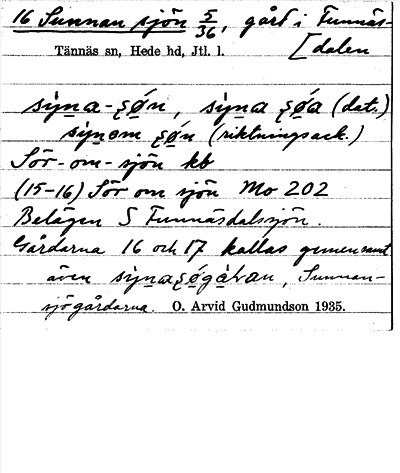 16 Sunnan sjön 5/36, gård i Funnäs-
[dalen
Tännäs sn, Hede hd, Jtl. l.
sỵṇa-ʂø̣n, sỵṇa ʂø̣a (dat.)
sỵṇom ʂø̣n (riktningsack.)
Sör-om-sjön kb
(15-16) Sör om sjön Mo 202
Belägen S Funnäsdalsjön.
Gårdarna 16 och 17 kallas gemensamt
även sỵṇaʂø̣gàḷan, Sunnan-
sjögårdarna. O. Arvid Gudmundson 1935.